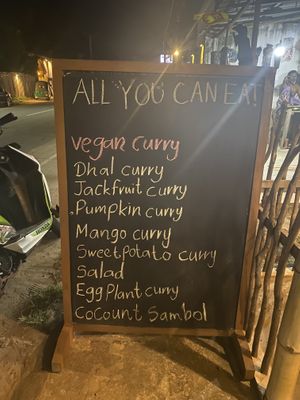 ALL YOU CAN EAT
vegan curry
Dhal curry
Jackfruit curry
Pumpkin curry
Mango curry
Sweet potato curry
Salad
Egg Plant curry
Cocount Sambol